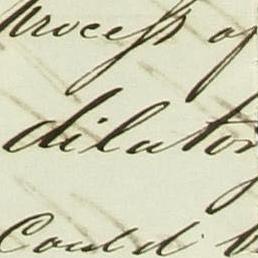 process of
dilatory
Could